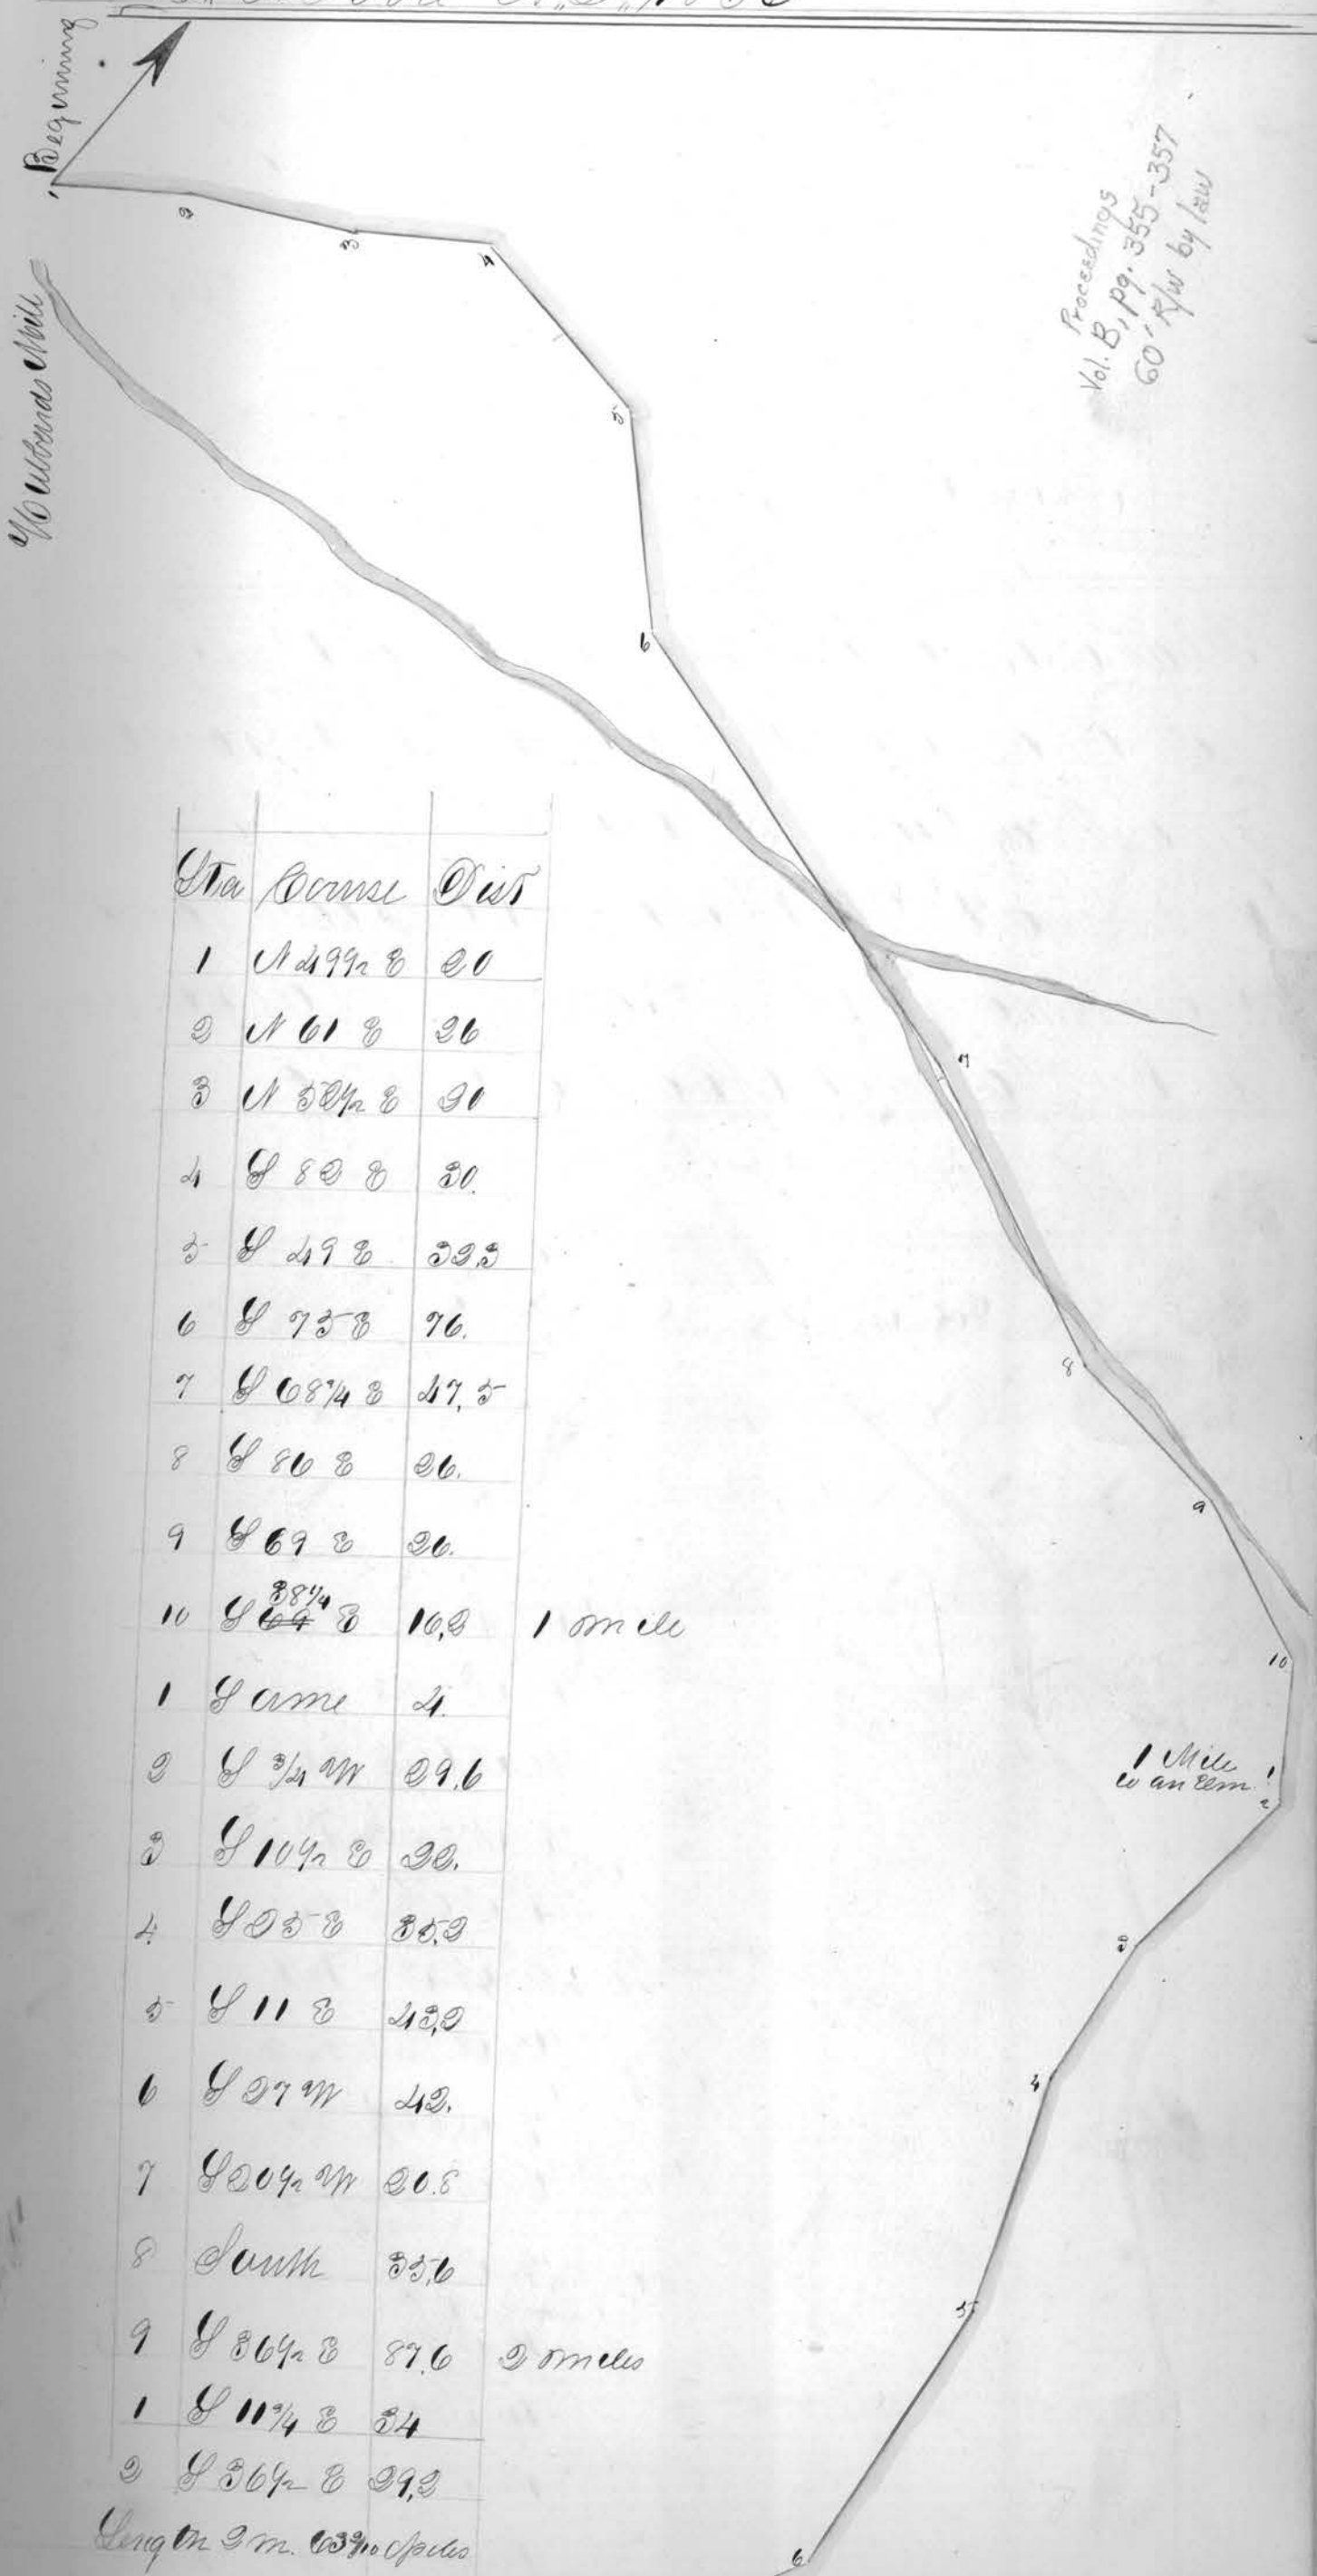 Beginning
Proceedings
Vol. B, pg. 355-357
60' R/W by law
Hulburds Mill
2
3
4
5
6
7
8
9
10
1 Mile 1
to an Elm
2
3
4
5
6
Sta Course Dist
1 N 49½ E 20
2 N 61 E 26
3 N 52½ E 20
4 S 82 E 30.
5 S 49 E 32,3
6 S 75 E 76.
7 S 68¾ E 47,5
8 S 86 E 26.
9 S 69 E 26.
10 S 69 38¼ E 16,2 1 mile
1 Same 4.
2 S ¾ W 29,6
3 S 10½ E 22.
4 S 25 E 35,2
5 S 11 E 43,2
6 S 27 W 42.
7 S 20½ W 20.8
8 South 35,6
9 S 36½ E 87,6 2 miles
1 S 11¾ E 34
2 S 36½ E 29,2
Length 2 m. 63 2/10 Poles